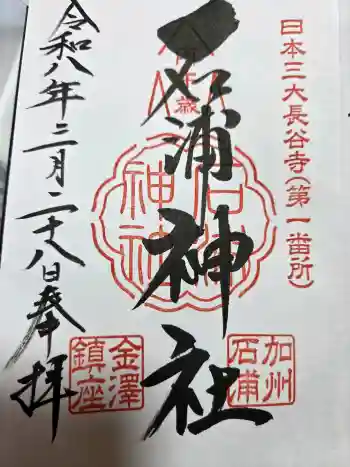 日本三大長谷寺(第一番所)
石浦神社
石浦神社
加州
石浦
令和八年二月二十八日奉拝
金澤
鎮座